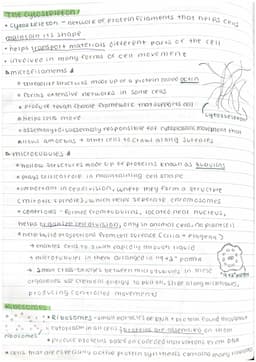 The Cytoskeleton
• cytoskeleton - network of protein filaments that helps cell
maintain its shape
• helps transport materials different parts of the cell
• involved in many forms of cell movement
microfilaments
• threadlike structures made up of a protein called actin
• forms extensive networks in some cells
• produce tough flexible framework that supports cell
• helps cells move
• assembly/disassembly responsible for cytoplasmic movement that
allows amoebas + other cells to crawl along surfaces
microtubules
• hollow structures made up of proteins known as tubulins
• plays critical role in maintaining cell shape
• important in cell division, where they form a structure
(mitotic spindle), which helps separate chromosomes
• centrioles - formed from tubulins, located near nucleus,
helps organize cell division, only in animal cells, no plant cell
• help build projections from cell surface (cilia + flagella)
→ enables cells to swim rapidly through liquid
→ microtubules in them arranged in "9+2" pattern
→ small cross-bridges between microtubules in these
organelles use chemical energy to pull on, slide along microtubules,
producing controlled movements
cytoskeleton
Ribosomes
• Ribosomes - small particles of RNA + protein found throughout
cytoplasm in all cells (proteins are assembled on them
ribosomes
• produce proteins based on coded instructions from DNA
• cells that are especially active in protein synthesis contain many